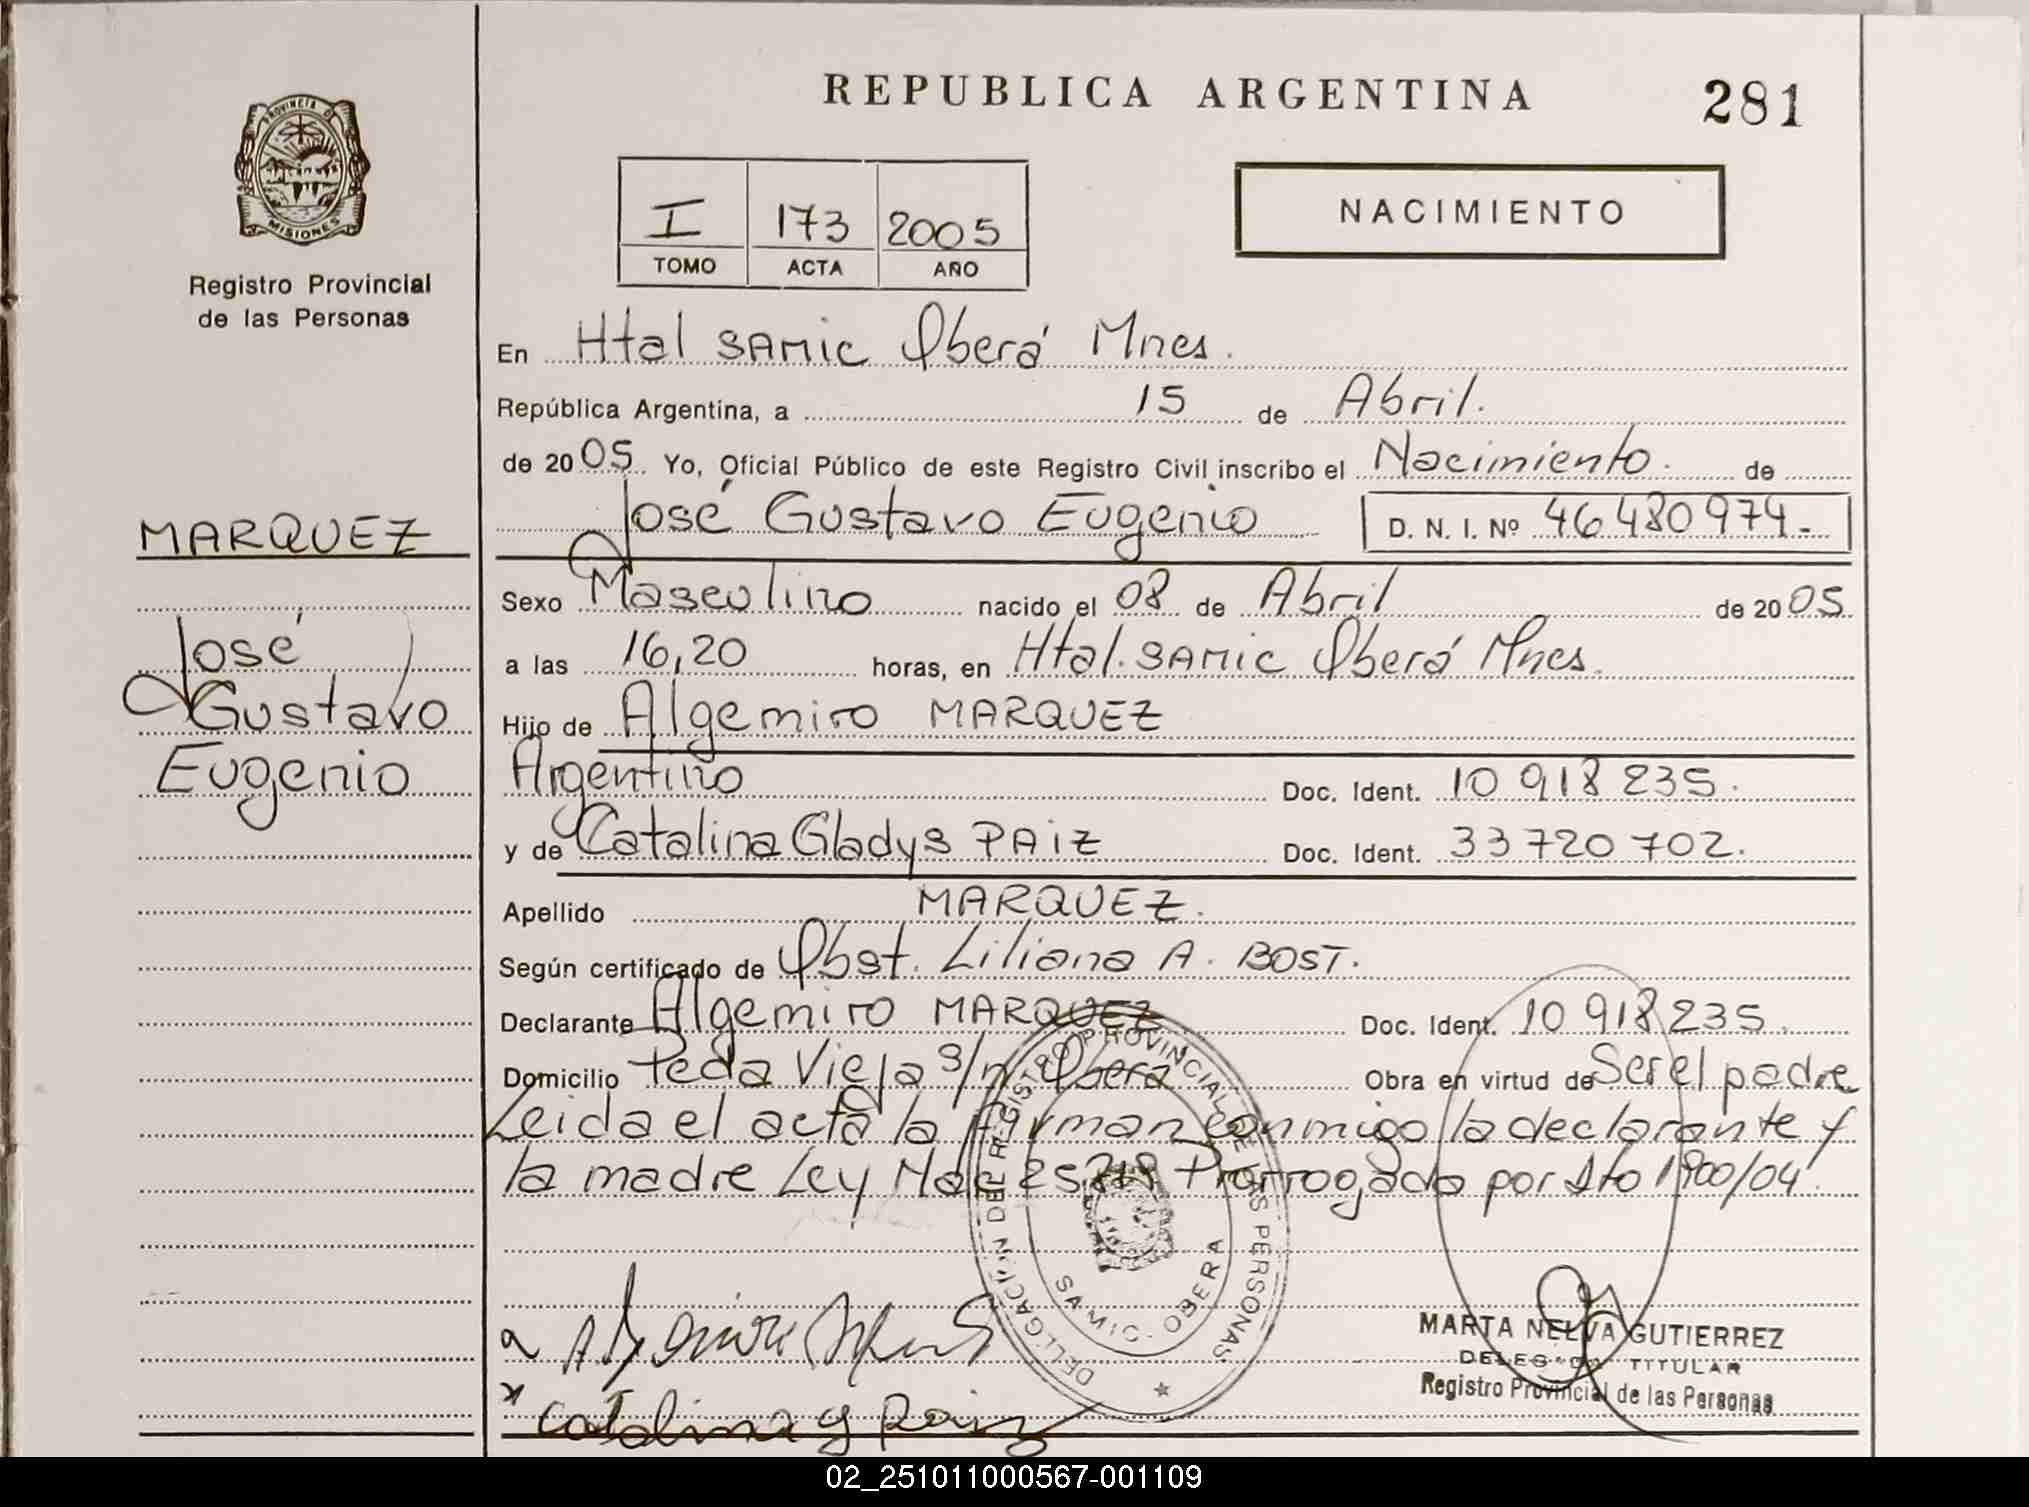 REPUBLICA ARGENTINA
281
PROVINCIA DE
MISIONES
Registro Provincial
de las Personas
I 173 2005
TOMO ACTA AÑO
NACIMIENTO
En Htal SAMIC Oberá Mnes.
República Argentina, a 15 de Abril.
de 2005 Yo, Oficial Público de este Registro Civil inscribo el Nacimiento. de
José Gustavo Eugenio D. N. I. Nº 46480974.-
MARQUEZ
José
Gustavo
Eugenio
Sexo Masculino nacido el 08 de Abril de 2005
a las 16,20 horas, en Htal. SAMIC Oberá Mnes.
Hijo de Algemiro MARQUEZ
Argentino Doc. Ident. 10 918 235.
y de Catalina Gladys PAIZ Doc. Ident. 33 720 702.
Apellido MARQUEZ.
Según certificado de Obst. Liliana A. BOST.
Declarante Algemiro MARQUEZ Doc. Ident. 10 918 235.
Domicilio Peda Vieja s/n Oberá Obra en virtud de Ser el padre
Leida el acta la firman conmigo la declarante y
la madre Ley Nac Prorrogada por Dto 1900/04.
DELEGACION DEL REGISTRO PROVINCIAL DE LAS PERSONAS
SAMIC - OBERA
Catalina g Paiz
MARTA NELVA GUTIERREZ
DELEGADA TITULAR
Registro Provincial de las Personas
02_251011000567-001109